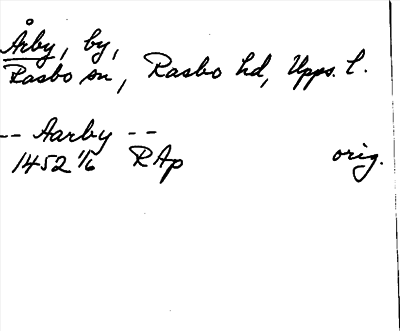 Årby, by,
Rasbo sn, Rasbo hd, Upps. l.
-- Aarby --
1452 1/6 RAp orig.